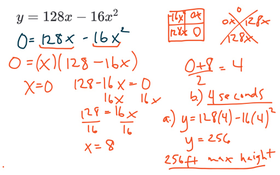 y = 128x - 16x²
0 = 128x - 16x²
0 = (x)(128 - 16x)
x = 0
128 - 16x = 0
16x 16x
128 = 16x
16 16
x = 8
16x 0x
16x² 0
0
0x 128x
128x
0 + 8 = 4
2
b.) 4 seconds
a.) y = 128(4) - 16(4)²
y = 256
256ft max height